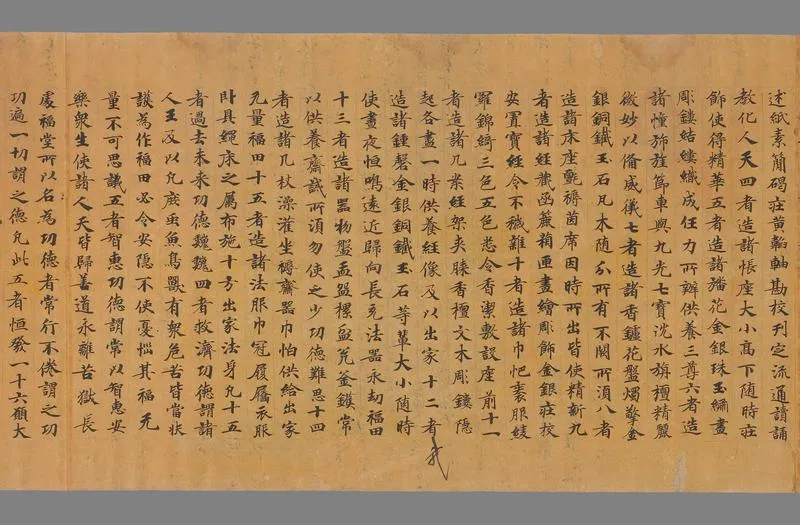 述紙素簡碣莊黃韜軸勘校刊定流通讀誦
教化人天四者造諸帳座大小髙下随時莊
飾使得精華五者造諸旛花金銀珠玉繡畫
彫鏤結縷織成任力所辦供養三尊六者造
諸幢斾旌節車輿九光七寳沈水旃檀精麗
微妙以俻威儀七者造諸香鑪花盤燭擎金
銀銅鐵玉石凡木随分所有不闕所湏八者
造諸床座氈褥茵席因時所出皆使精新九
者造諸經藏函簏箱匣畫繪彫飾金銀莊校
安置寳經令不穢雜十者造諸巾帊裹服綾
羅錦綺三色五色悉令香潔敷設座前十一
者造諸几案經架夾膝香檀文木彫鏤隠
起各盡一時供養經像及以出家十二者
造諸鍾磬金銀銅鐵玉石等軰大小随時
使晝夜恒鳴逺近歸向長充法器永劫福田
十三者造諸器物盤盂盌楪瓫甖釜鑊常
以供養齋誡所湏勿使乏少功德難思十四
者造諸几杖澡灌坐褥齋器巾帕供給出家
无量福田十五者造諸法服巾冠履屩衣服
卧具繩床之属布施十方出家法身凡十五
者過去未来功德巍巍四者救濟功德謂諸
人王及以凡庶䖝魚鳥獸有衆危苦皆當状
䕶為作福田必令安隠不使憂惱其福无
量不可思議五者智惠功德謂常以智惠安
樂衆生使諸人天皆歸善道永離苦獄長
處福堂所以名為功德者常行不倦謂之功
功遍一切謂之德凡此五者恒發一十六願大